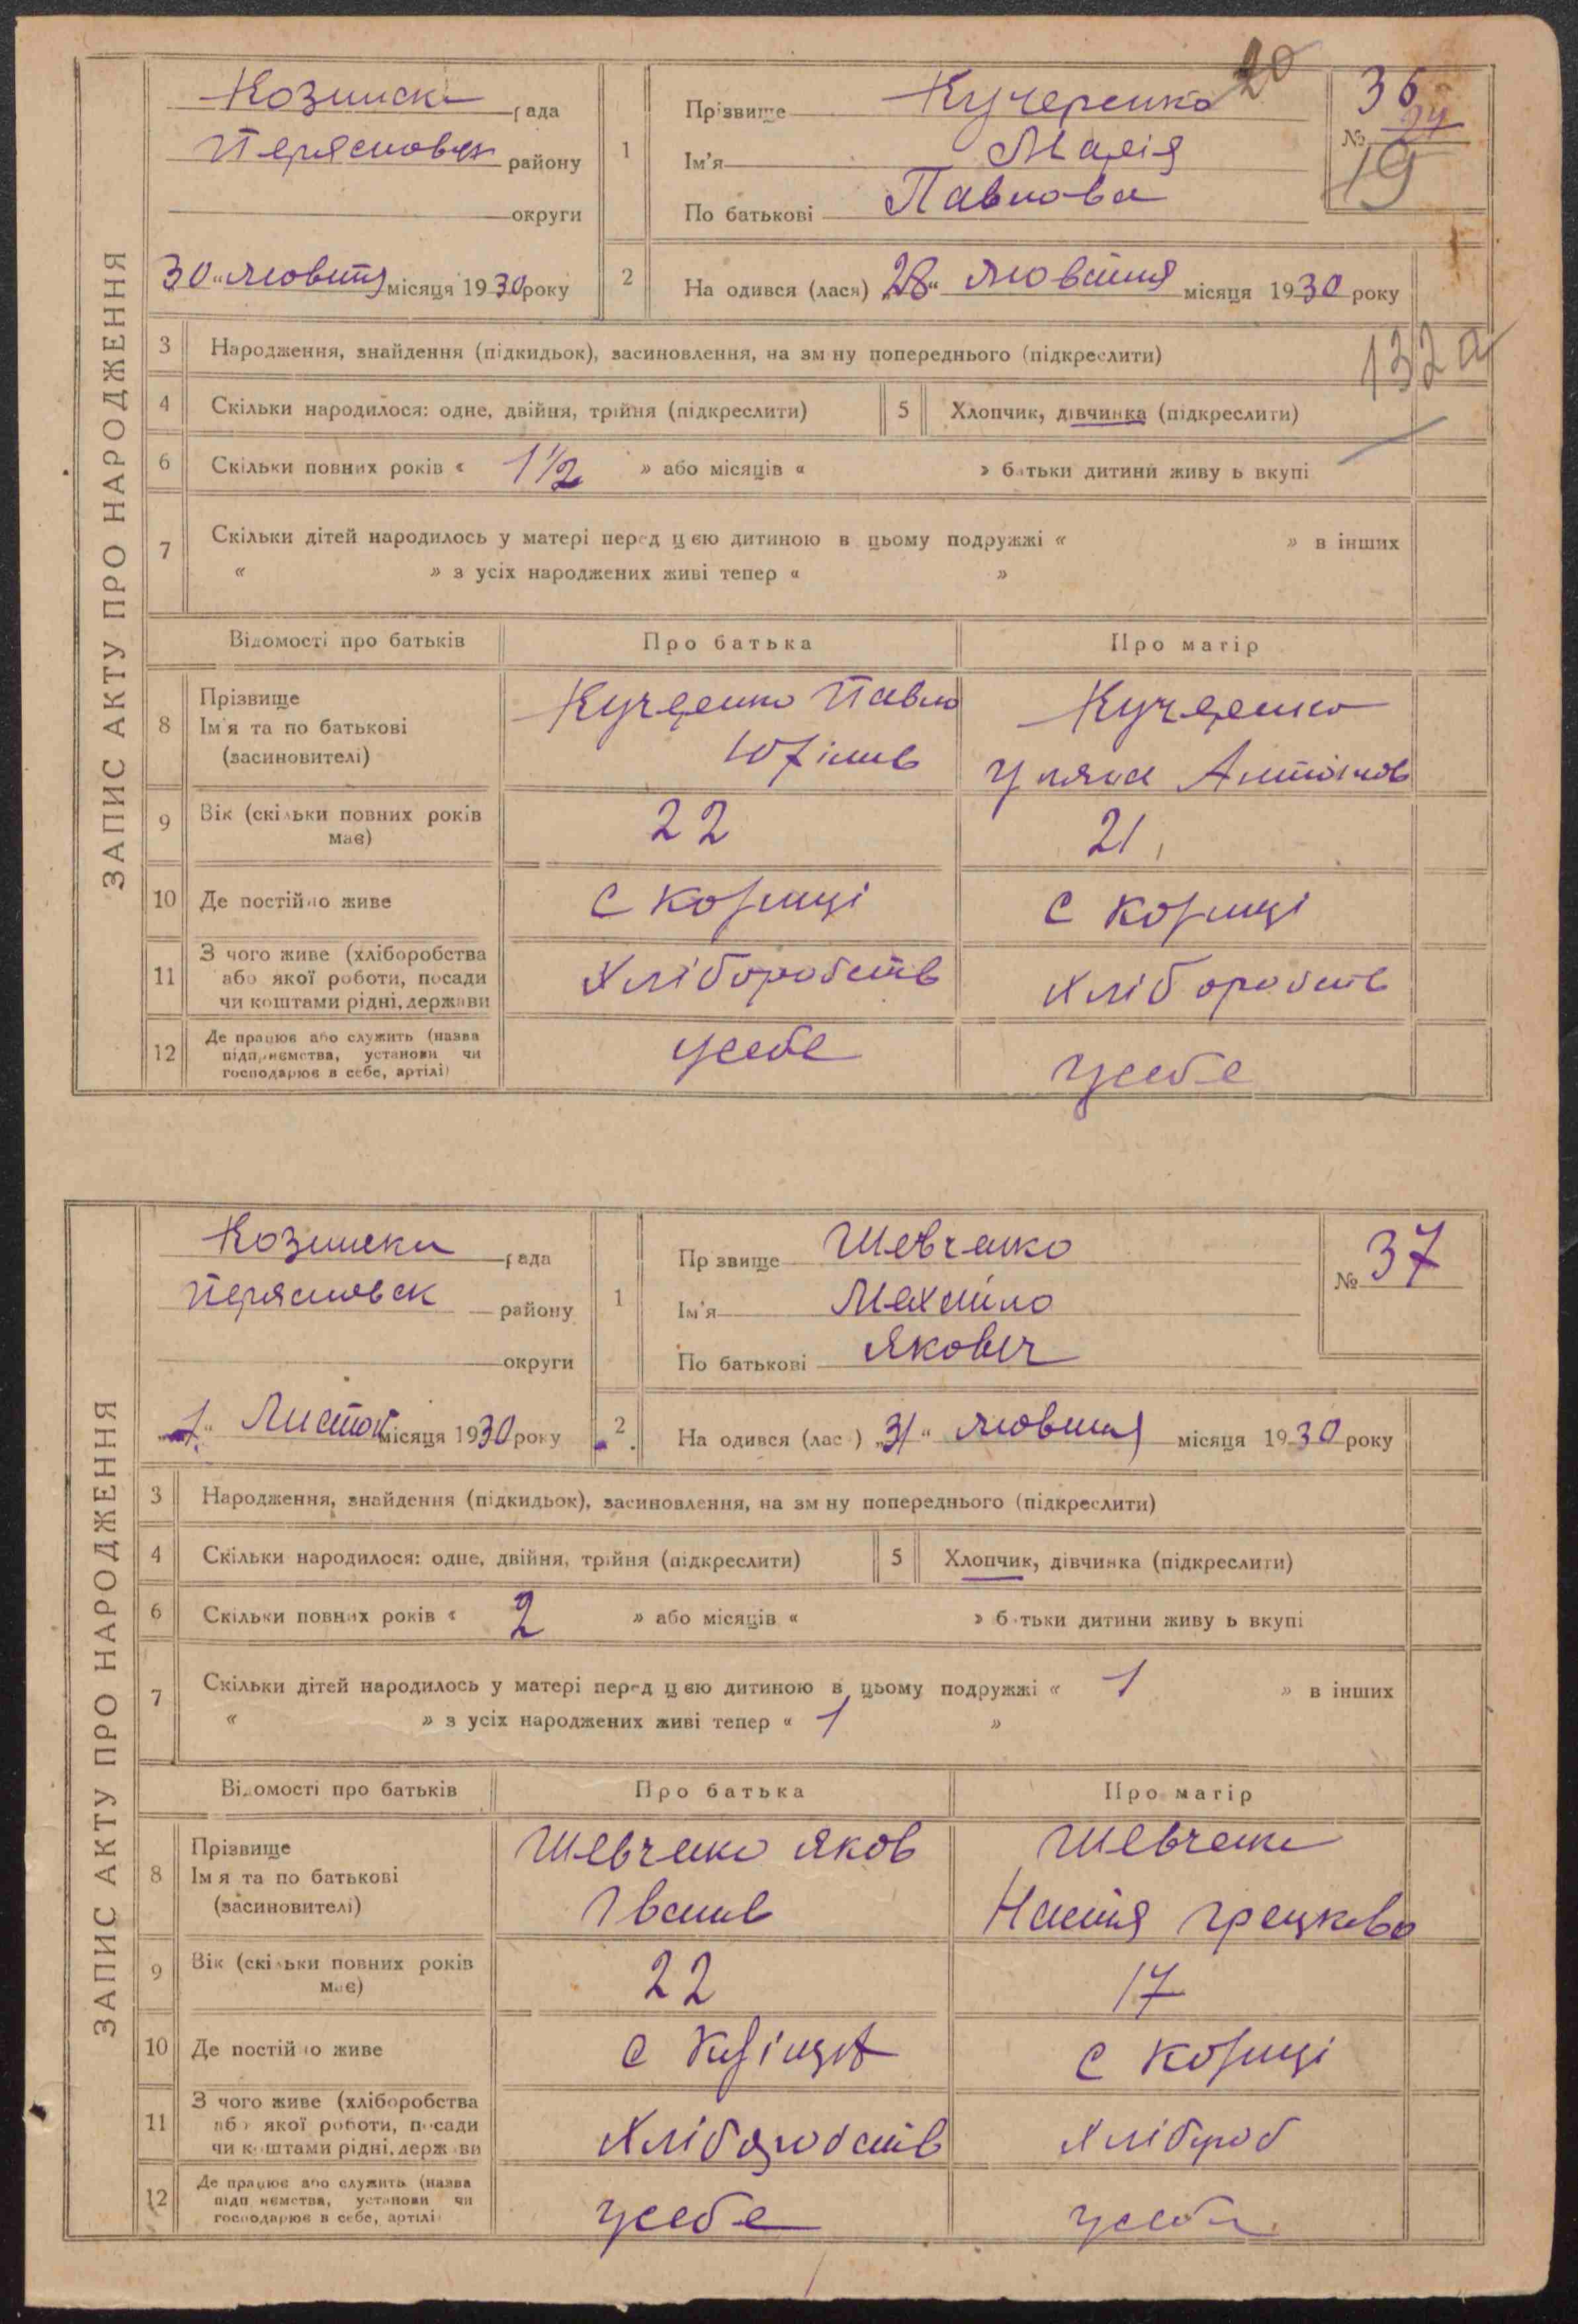 ЗАПИС АКТУ ПРО НАРОДЖЕННЯ
Козинска рада
Переясловск району
округи
30 "жовтня місяця 1930 року
1
Прізвище Кучеренко
Ім'я Марія
По батькові Павлова
20
№ 36
24
19
2 На одився (лася) „28“ жовтня місяця 1930 року
3 Народження, знайдення (підкидьок), засиновлення, на зм ну попереднього (підкреслити)
132а
4 Скільки народилося: одне, двійня, трійня (підкреслити)
5 Хлопчик, дівчинка (підкреслити)
6 Скільки повних років « 1½ » або місяців « » батьки дитини живу ь вкупі
7 Скільки дітей народилось у матері перед цєю дитиною в цьому подружжі « » в інших
« » з усіх народжених живі тепер « »
Відомості про батьків Про батька Про матір
8 Прізвище
Ім'я та по батькові
(засиновителі)
Кучеренко Павло
Юхимів
Кучеренко
Уляна Антонов
9 Вік (скільки повних років має) 22 21
10 Де постійно живе с Козинці с Козинці
11 З чого живе (хліборобства
або якої роботи, посади
чи коштами рідні, держави
Хліборобств Хліборобств
12 Де працює або служить (назва
підприємства, установи чи
господарює в себе, артілі)
усебе усебе
ЗАПИС АКТУ ПРО НАРОДЖЕННЯ
Козинска рада
Переясловск району
округи
„1“ Листоп місяця 1930 року
1
Пр звище Шевченко
Ім'я Михайло
По батькові Якович
№ 37
2 На одився (лас ) „31“ жовтня місяця 1930 року
3 Народження, знайдення (підкидьок), засиновлення, на зм ну попереднього (підкреслити)
4 Скільки народилося: одне, двійня, трійня (підкреслити)
5 Хлопчик, дівчинка (підкреслити)
6 Скільки повних років « 2 » або місяців « » б тьки дитини живу ь вкупі
7 Скільки дітей народилось у матері перед цєю дитиною в цьому подружжі « 1 » в інших
« » з усіх народжених живі тепер « 1 »
Відомості про батьків Про батька Про матір
8 Прізвище
Ім я та по батькові
(засиновителі)
Шевченко Яков
Іванів
Шевченко
Настя Грецкова
9 Вік (скільки повних років має) 22 17
10 Де постійно живе с Козінця с Козинці
11 З чого живе (хліборобства
або якої роботи, посади
чи коштами рідні, держави
Хліборобств Хлібороб
12 Де працює або служить (назва
підприємства, установи чи
господарює в себе, артілі
усебе усебе